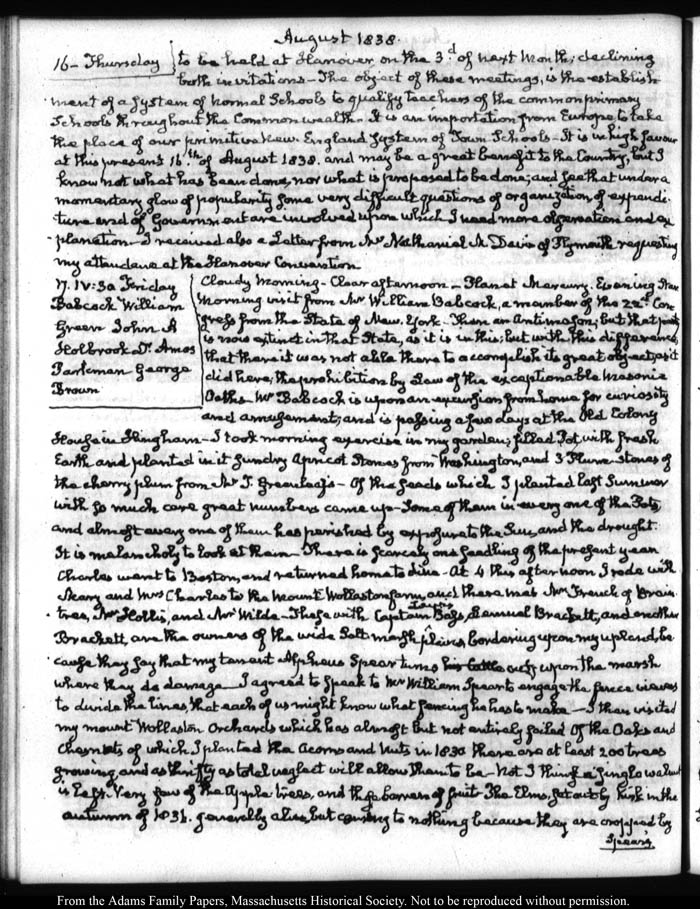 August 1838.
16 - Thursday } to be held at Hanover on the 3.d of next Month; declining
both invitations - The object of these meetings, is the establish
ment of a System of normal Schools to qualify teachers of the common primary
Schools throughout the Commonwealth. It is an importation from Europe to take
the place of our primitive New-England System of Town Schools - It is in high favour
at this present 16th of August 1838. and may be a great benefit to the Country, but I
know not what has been done, nor what is proposed to be done; and see that under a
momentary glow of popularity some very difficult questions of organization of expendi-
ture and of Government are involved upon which I need more observation and ex
planation - I received also a Letter from Mr Nathaniel M. Davis of Plymouth requesting
my attendance at the Hanover Convention
17. IV:30 Friday
Babcock William
Green John A
Holbrook Dr. Amos
Parkman George
Brown
Cloudy Morning - Clear afternoon - Planet Mercury. Evening Star
Morning visit from Mr William Babcock, a member of the 22d Con
gress from the State of New-York - Then an Antimason; but that party
is now extinct in that State, as it is in this; but with this difference,
that there it was not able there to accomplish its great object, as it
did here; the prohibition by Law of the exceptionable Masonic
Oaths - Mr Babcock is upon an excursion from home for curiosity
and amusement; and is passing a few days at the Old Colony
House in Hingham - I took morning exercise in my garden; filled Pot, with fresh
Earth and planted in it sundry Apricot Stones from Washington, and 3 Plum-Stones of
the cherry plum from Mr T. Greenleaf's - Of the seeds which I planted last Summer
with so much care great numbers came up - Some of them in every one of the Pots,
and almost every one of them has perished by exposure to the Sun, and the drought.
It is melancholy to look at them - There is scarcely one seedling of the present year
Charles went to Boston, and returned home to dine - At 4 this afternoon I rode with
Mary and Mrs Charles to the Mount Wollaston farm, and there met Mr French of Brain
tree, Mr Hollis, and Mr Wilde - These with Captain Bass, Lemuel Brackett, and another
Brackett, are the owners of the wide Salt marsh plains bordering upon my upland, be
cause they say that my tenant Alpheus Spear turns his cattle out upon the marsh
where they do damage - I agreed to speak to Mr William Spear to engage the fence viewers
to divide the lines that each of us might know what fencing he has to make - I then visited
my mount Wollaston Orchards which has almost but not entirely failed Of the Oaks and
Chesnuts of which I planted the Acorns and Nuts in 1830 there are at least 200 trees
growing, and as thrifty as total neglect will allow them to be - Not I think a single walnut
is left. Very few of the Apple trees, and those barren of fruit - The Elms, set out by Kirk in the
autumn of 1831. generally alive, but coming to nothing because they are cropped by
Spear's
From the Adams Family Papers, Massachusetts Historical Society. Not to be reproduced without permission.